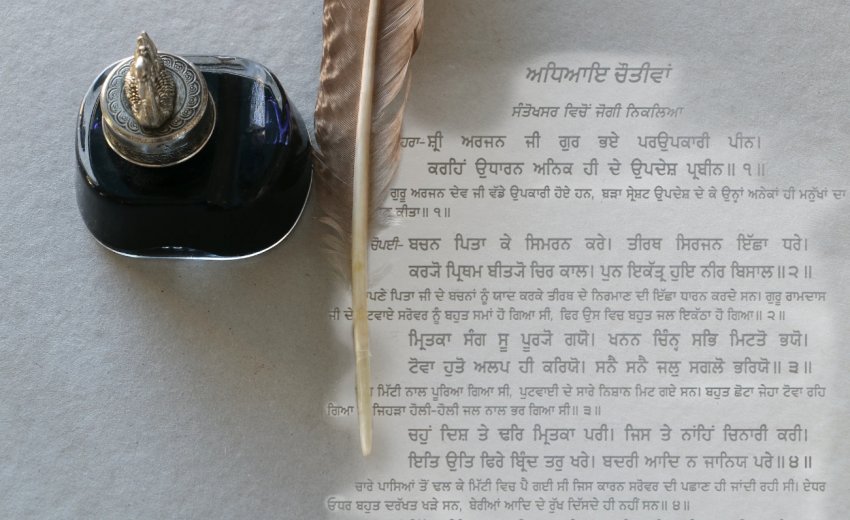 ਅਧਿਆਇ ਚੌਤੀਵਾਂ
ਸੰਤੋਖਸਰ ਵਿਚੋਂ ਜੋਗੀ ਨਿਕਲਿਆ
ਹਰਾ–ਸ਼੍ਰੀ ਅਰਜਨ ਜੀ ਗੁਰ ਭਏ ਪਰਉਪਕਾਰੀ ਪੀਨ।
ਕਰਹਿਂ ਉਧਾਰਨ ਅਨਿਕ ਹੀ ਦੇ ਉਪਦੇਸ਼ ਪ੍ਰਬੀਨ॥੧॥
ਗੁਰੂ ਅਰਜਨ ਦੇਵ ਜੀ ਵੱਡੇ ਉਪਕਾਰੀ ਹੋਏ ਹਨ, ਬੜਾ ਸ੍ਰੇਸ਼ਟ ਉਪਦੇਸ਼ ਦੇ ਕੇ ਉਨ੍ਹਾਂ ਅਨੇਕਾਂ ਹੀ ਮਨੁੱਖਾਂ ਦਾ
ਕੀਤਾ॥੧॥
ਚੋਪਈ–ਬਚਨ ਪਿਤਾ ਕੇ ਸਿਮਰਨ ਕਰੇ। ਤੀਰਥ ਸਿਰਜਨ ਇੱਛਾ ਧਰੇ।
ਕਰ੍ਯੋ ਪ੍ਰਿਥਮ ਬੀਤ੍ਯੋ ਚਿਰ ਕਾਲ। ਪੁਨ ਇਕੱਤ੍ਰ ਹੁਇ ਨੀਰ ਬਿਸਾਲ॥੨॥
ਪਣੇ ਪਿਤਾ ਜੀ ਦੇ ਬਚਨਾਂ ਨੂੰ ਯਾਦ ਕਰਕੇ ਤੀਰਥ ਦੇ ਨਿਰਮਾਣ ਦੀ ਇੱਛਾ ਧਾਰਨ ਕਰਦੇ ਸਨ। ਗੁਰੂ ਰਾਮਦਾਸ
ਜੀ ਦੇ ਪੁਟਵਾਏ ਸਰੋਵਰ ਨੂੰ ਬਹੁਤ ਸਮਾਂ ਹੋ ਗਿਆ ਸੀ, ਫਿਰ ਉਸ ਵਿਚ ਬਹੁਤ ਜਲ ਇਕੱਠਾ ਹੋ ਗਿਆ॥੨॥
ਮ੍ਰਿਤਕਾ ਸੰਗ ਸੂ ਪੂਰ੍ਯੋ ਗਯੋ। ਖਨਨ ਚਿੰਨ੍ਹ ਸਭਿ ਮਿਟਤੋ ਭਯੋ।
ਟੋਵਾ ਹੁਤੋ ਅਲਪ ਹੀ ਕਰਿਯੋ। ਸਨੈ ਸਨੈ ਜਲੁ ਸਗਲੋ ਭਰਿਯੋ॥੩॥
ਮਿੱਟੀ ਨਾਲ ਪੂਰਿਆ ਗਿਆ ਸੀ, ਪੁਟਵਾਈ ਦੇ ਸਾਰੇ ਨਿਸ਼ਾਨ ਮਿਟ ਗਏ ਸਨ। ਬਹੁਤ ਛੋਟਾ ਜੇਹਾ ਟੋਵਾ ਰਹਿ
ਗਿਆ ਜਿਹੜਾ ਹੌਲੀ-ਹੌਲੀ ਜਲ ਨਾਲ ਭਰ ਗਿਆ ਸੀ॥੩॥
ਚਹੁਂ ਦਿਸ਼ ਤੇ ਢਰਿ ਮ੍ਰਿਤਕਾ ਪਰੀ। ਜਿਸ ਤੇ ਨਾਂਹਿਂ ਚਿਨਾਰੀ ਕਰੀ।
ਇਤਿ ਉਤਿ ਫਿਰੇ ਬ੍ਰਿੰਦ ਤਰੁ ਖਰੇ। ਬਦਰੀ ਆਦਿ ਨ ਜਾਨਿਯ ਪਰੇ॥੪॥
ਚਾਰੇ ਪਾਸਿਆਂ ਤੋਂ ਢਲ ਕੇ ਮਿੱਟੀ ਵਿਚ ਪੈ ਗਈ ਸੀ ਜਿਸ ਕਾਰਨ ਸਰੋਵਰ ਦੀ ਪਛਾਣ ਹੀ ਜਾਂਦੀ ਰਹੀ ਸੀ। ਏਧਰ
ਓਧਰ ਬਹੁਤ ਦਰੱਖਤ ਖੜੇ ਸਨ, ਬੇਰੀਆਂ ਆਦਿ ਦੇ ਰੁੱਖ ਦਿੱਸਦੇ ਹੀ ਨਹੀਂ ਸਨ॥੪॥